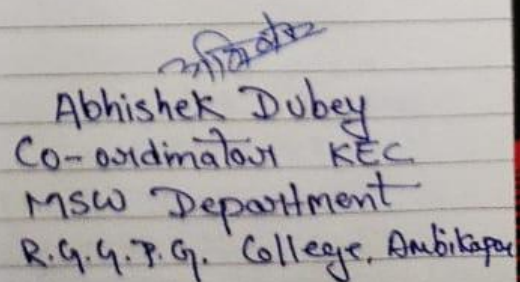 अभिषेक
Abhishek Dubey
Co-ordinator KEC
MSW Department
R.G.G.P.G. College, Ambikapur